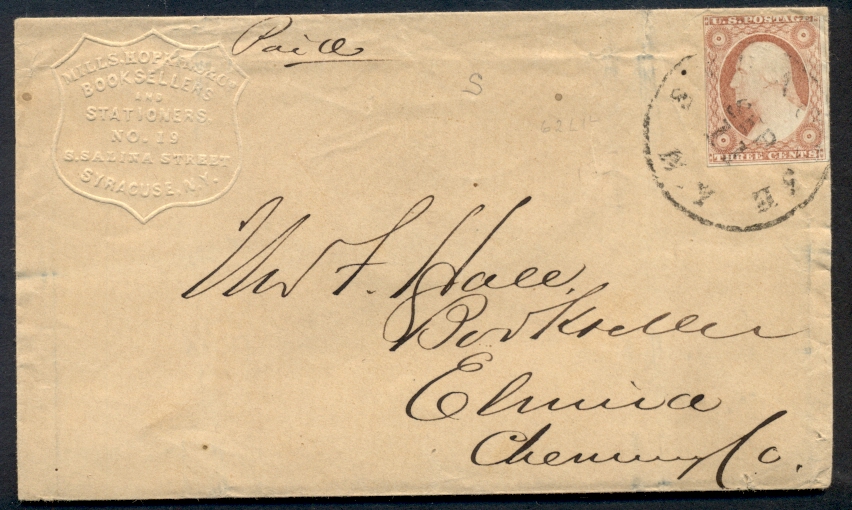 Paid
MILLS, HOPKINS & CO.
BOOKSELLERS
AND
STATIONERS.
NO. 19
S. SALINA STREET
SYRACUSE, N.Y.
U.S. POSTAGE
THREE CENTS
F. Hall,
Bookseller
Elmira
Chemung Co.